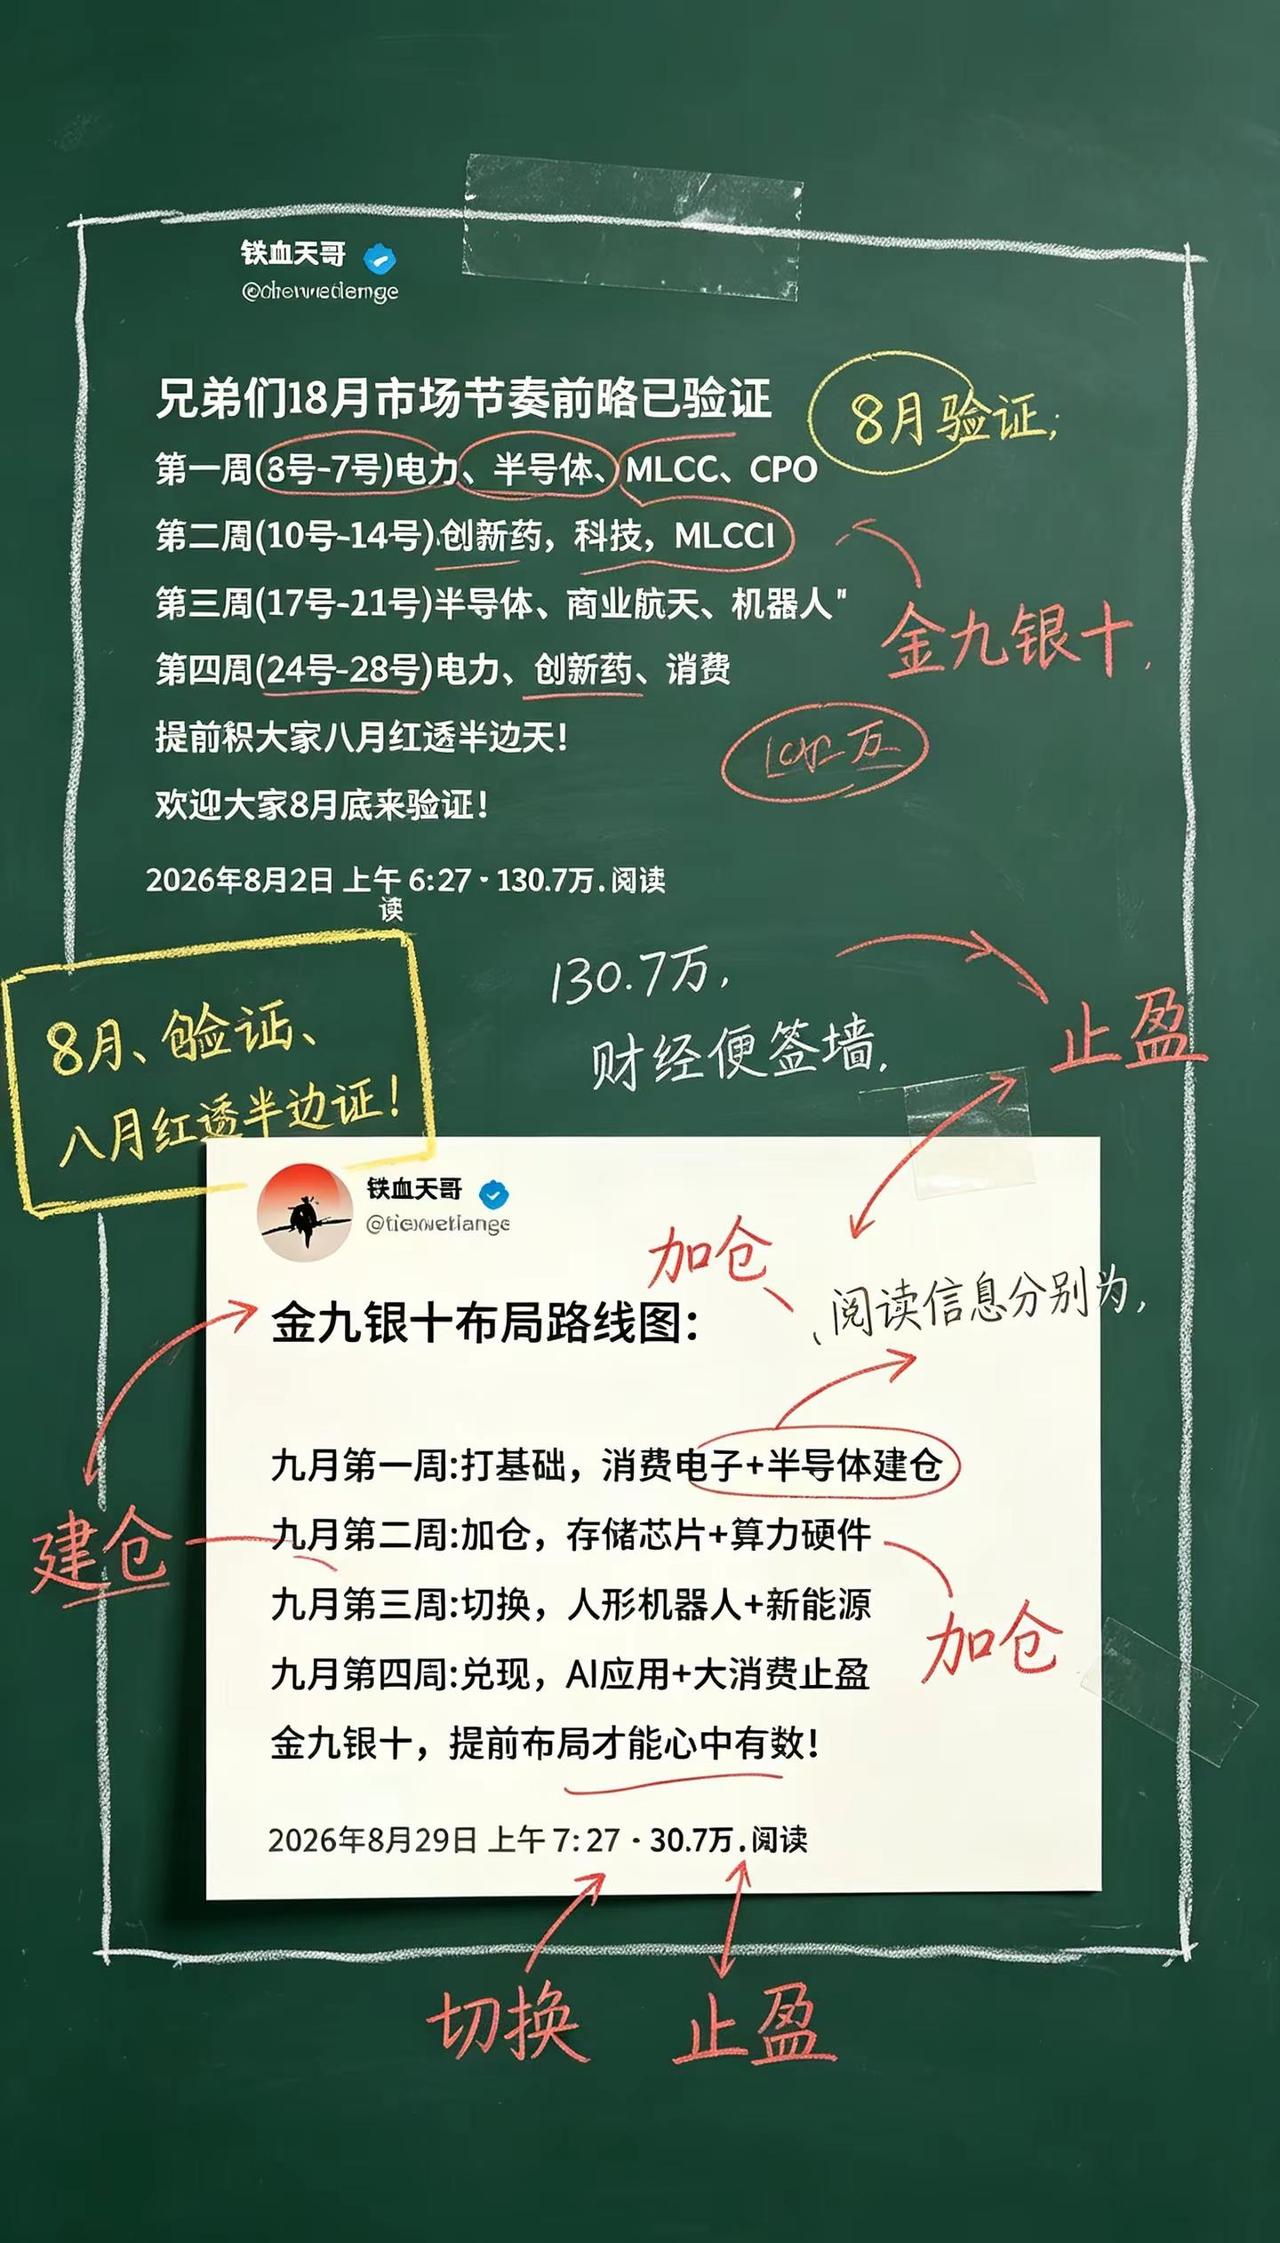 铁血天哥
兄弟们18月市场节奏前略已验证
8月验证;
第一周(3号-7号)电力、半号体、MLCC、CPO
第二周(10号-14号)创新药，科技，MLCCI
第三周(17号-21号)半导体、商业航天、机器人"
金九银十,
第四周(24号-28号)电力、创新药、消费
提前积大家八月红透半边天！
欢迎大家8月底来验证！
2026年8月2日 上午 6:27 · 130.7万.阅读
读
130.7万,
财经便签墙.
止盈
8月、验证、
八月红透半边证！
铁血天哥
加仓
阅读信息分别为,
金九银十布局路线图：
九月第一周:打基础，消费电子+半导体建仓
建仓
九月第二周:加仓，存储芯片+算力硬件
九月第三周:切换，人形机器人+新能源
加仓
九月第四周:兑现，AI应用+大消费止盈
金九银十，提前布局才能心中有数！
2026年8月29日 上午 7:27 · 30.7万.阅读
切换
止盈